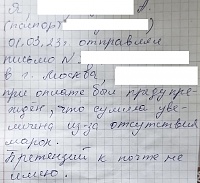 Я
(паспорт
01.03.23г. отправлял
письмо №.
в г. Москва,
при оплате был предупре-
жден, что сумма уве-
личена из-за отсутствия
марок.
Претензий к почте не
имею.